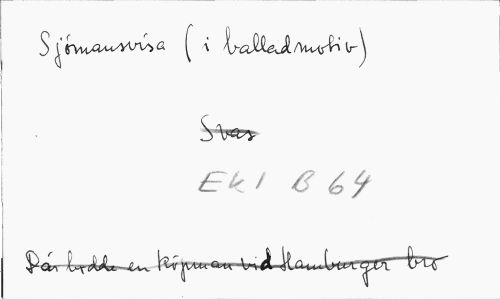 Sjömansvisa (i balladmotiv)
Svar
Ek 1 B 64
Där bodde en köpman vid Hamburger bro